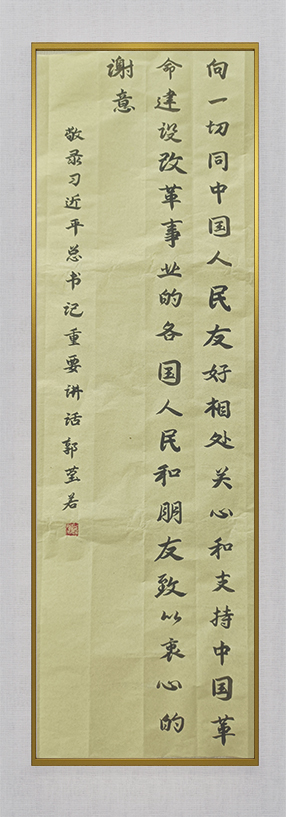 向一切同中国人民友好相处关心和支持中国革
命建设改革事业的各国人民和朋友致以衷心的
谢意
敬录习近平总书记重要讲话郭莹若